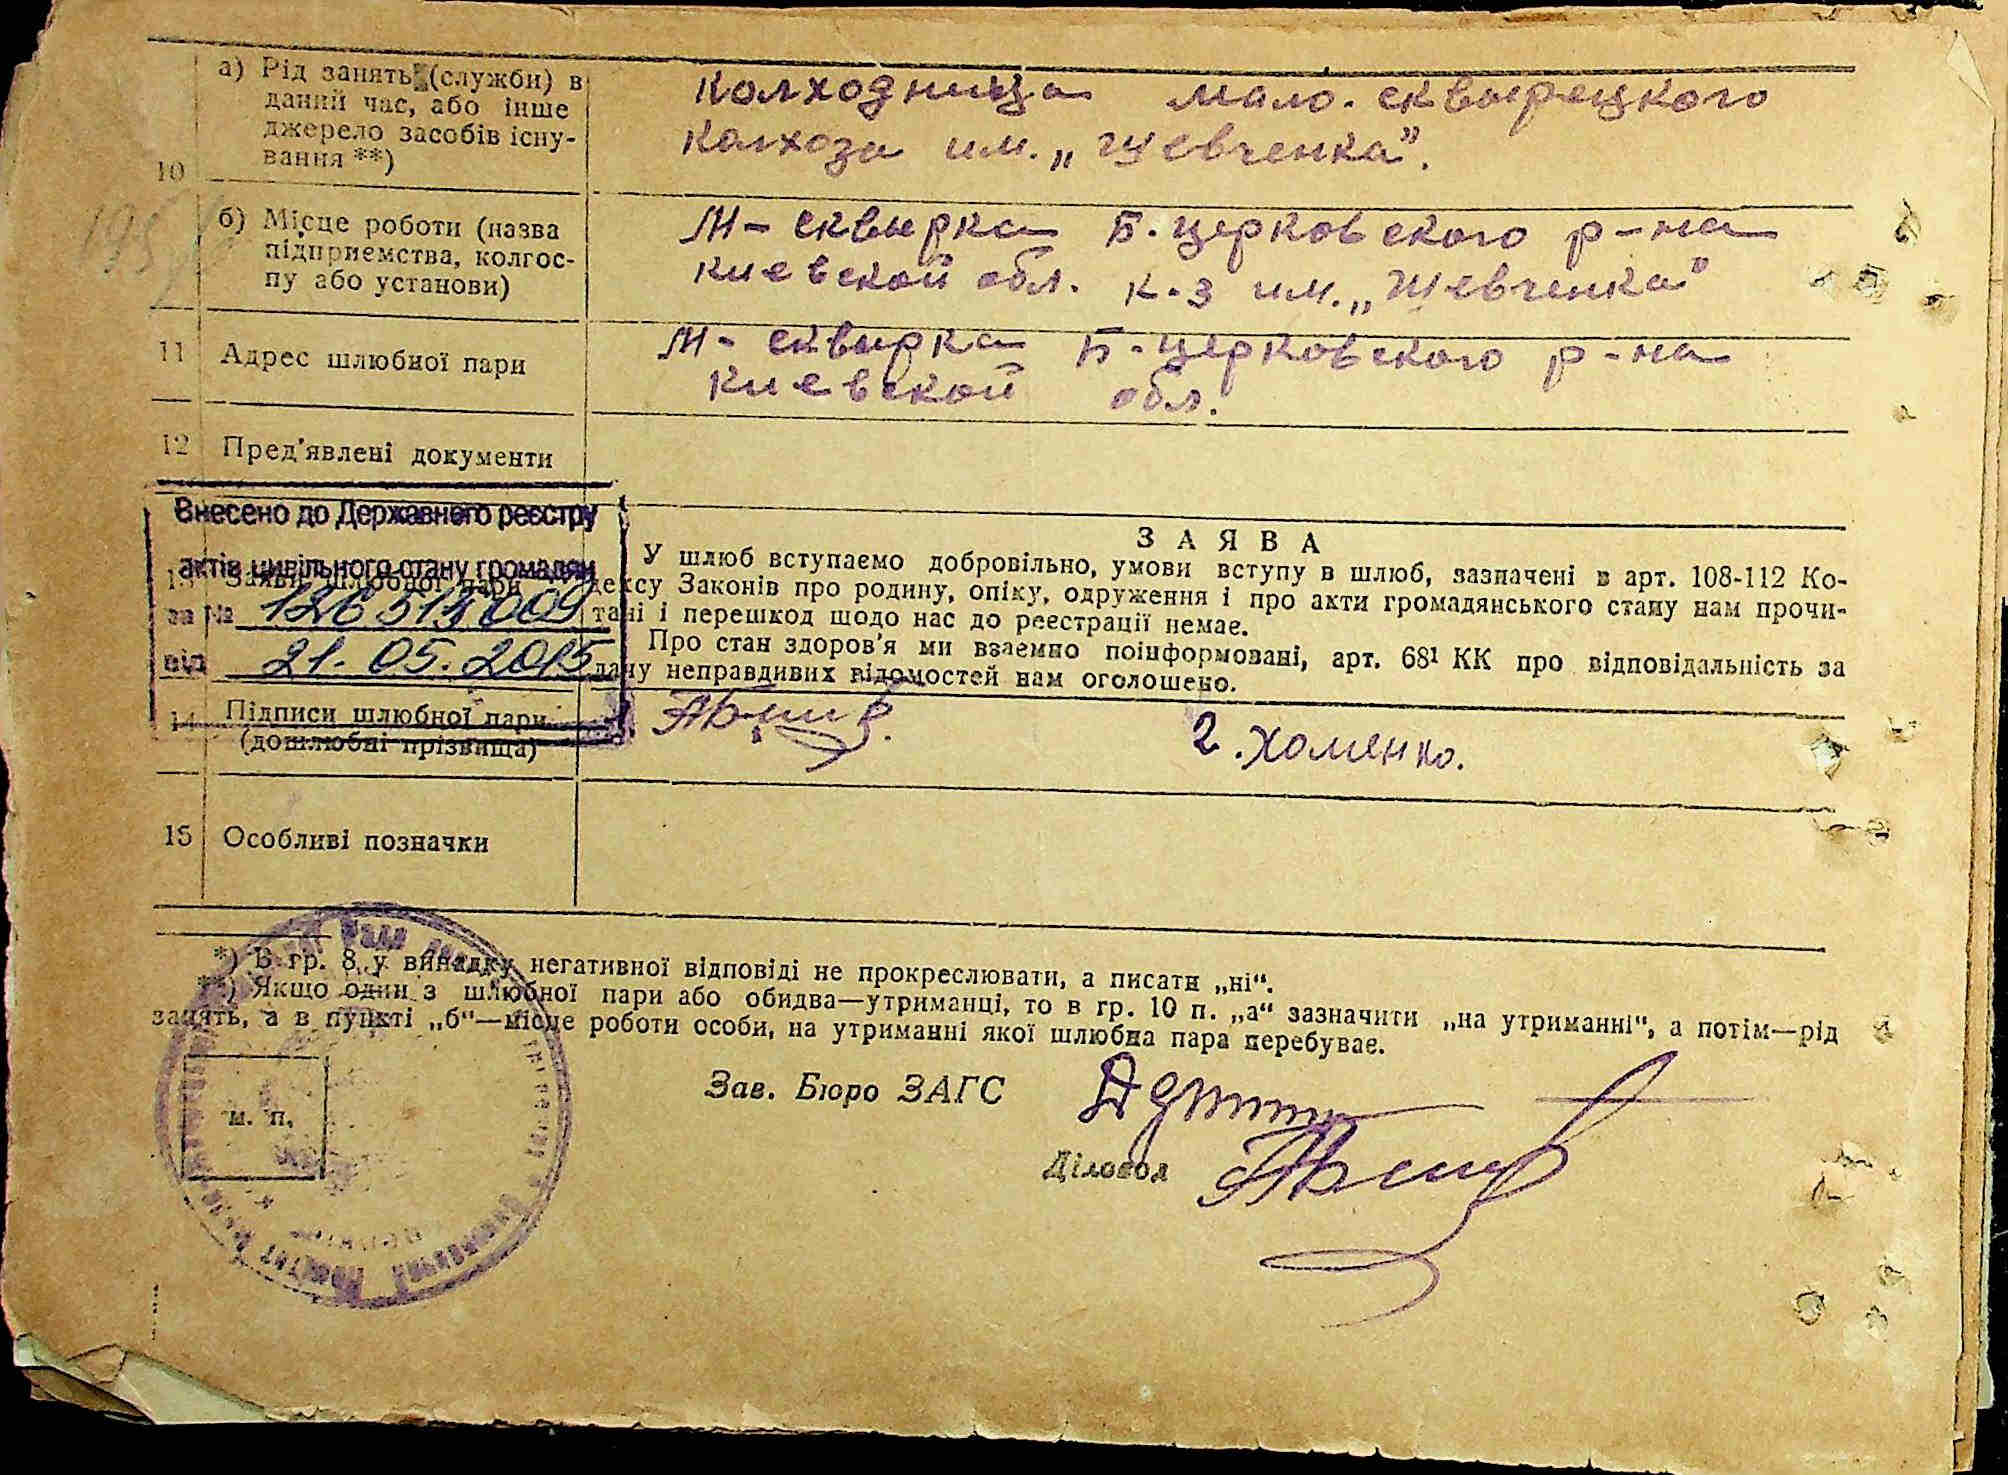 10
а) Рід занять (служби) в
даний час, або інше
джерело засобів існу-
вання **)
колходница мало. сквырецкого
колхоза им. „Шевченка".
б) Місце роботи (назва
підприємства, колгос-
пу або установи)
М-сквырка Б. церковского р-на
киевской обл. к-з им. „Шевченка"
11 Адрес шлюбної пари
М-сквырка Б-церковского р-на
киевской обл.
12 Пред'явлені документи
Внесено до Державного реєстру
актів цивільного стану громадян
за № 126514009
від 21.05.2015
13 Заяви шлюбної пари
ЗАЯВА
У шлюб вступаємо добровільно, умови вступу в шлюб, зазначені в арт. 108-112 Ко-
дексу Законів про родину, опіку, одруження і про акти громадянського стану нам прочи-
тані і перешкод щодо нас до реєстрації немає.
Про стан здоров'я ми взаємно поінформовані, арт. 68¹ КК про відповідальність за
дачу неправдивих відомостей нам оголошено.
14 Підписи шлюбної пари
(дошлюбні прізвища)
Г. Хоменко.
15 Особливі позначки
*) В гр. 8 у випадку негативної відповіді не прокреслювати, а писати „ні“.
**) Якщо один з шлюбної пари або обидва—утриманці, то в гр. 10 п. „а“ зазначити „на утриманні“, а потім—рід
занять, а в пункті „б“—місце роботи особи, на утриманні якої шлюбна пара перебуває.
Зав. Бюро ЗАГС
Діловод
м. п.